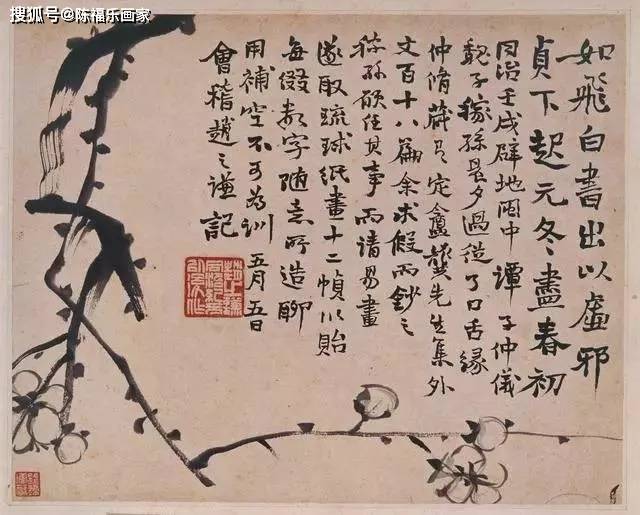 搜狐号@陈福乐画家
如飛白書出以虛邪
貞下起元冬盡春初
同治壬戌辟地閩中譚子仲儀
魏子稼孫晨夕過從了口舌緣
仲脩藏有定盦龔先生集外
文百十八篇余求假而鈔之
稼孫願任其事而請易畫
遂取琉球紙畫十二幀以貽
每綴數字隨意所造聊
用補空不可為訓 五月五日
會稽趙之謙記